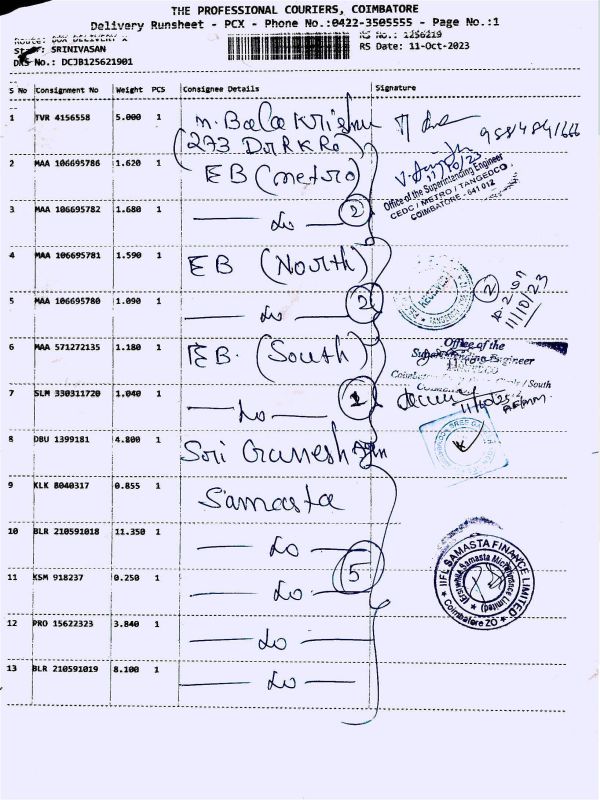 THE PROFESSIONAL COURIERS, COIMBATORE
Delivery Runsheet - PCX - Phone No.:0422-3505555 - Page No.:1
Route: BOX DELIVERY X
RS No.: 1256219
Staff: SRINIVASAN
RS Date: 11-Oct-2023
DRS No.: DCJB125621901
S No Consignment No Weight PCS Consignee Details Signature
1 TVR 4156558 5.000 1 M. Bala Krishn
(273 Dr RK Rd)
2 MAA 106695786 1.620 1 EB (metro)
11/10/23
Office of the Superintending Engineer
CEDC / METRO / TANGEDCO
COIMBATORE - 641 012
3 MAA 106695782 1.680 1 — do — 2
4 MAA 106695781 1.590 1 EB (North)
RECEIVED
2
11/10/23
5 MAA 106695780 1.090 1 — do — 2
6 MAA 571272135 1.180 1 EB. (South)
Office of the
Superintending Engineer
/ South
7 SLM 330311720 1.040 1 — do — 1
8 DBU 1399181 4.800 1 Sri Ganesh
9 KLK 8040317 0.855 1 Samasta
10 BLR 210591018 11.350 1 — do —
5
IIFL SAMASTA FINANCE LIMITED
(Erstwhile Samasta Microfinance Limited)
Coimbatore ZO
11 KSM 918237 0.250 1 — do —
12 PRO 15622323 3.840 1 — do —
13 BLR 210591019 8.100 1 — do —